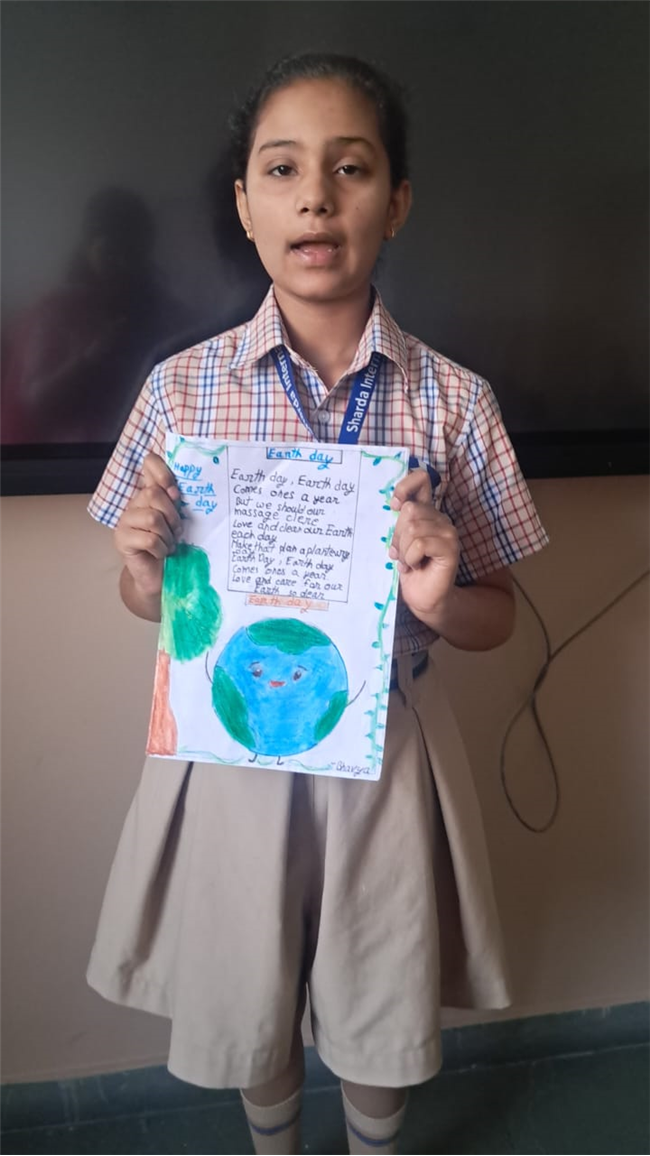 Sharda Intern
Sharda Intern
Earth day
Happy
Earth
day
Earth day, Earth day
Comes onses a year
But we should our
massage clere
Love and clean our Earth
each day
Make that plan a plant every
day
Earth Day, Earth day
Comes onses a year
Love and care for our
Earth so dear
Earth day